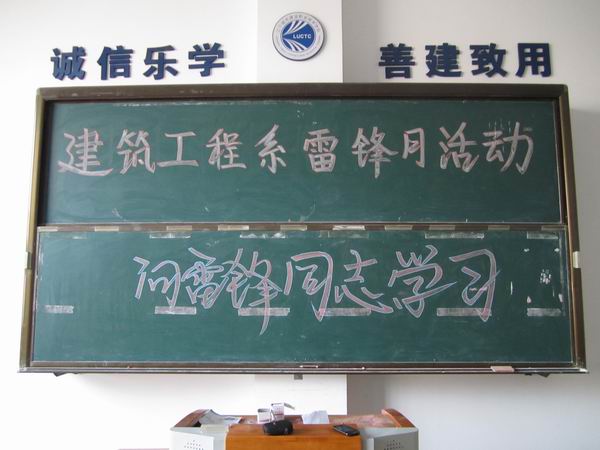 诚信乐学
LUCTC
善建致用
建筑工程系雷锋月活动
向雷锋同志学习